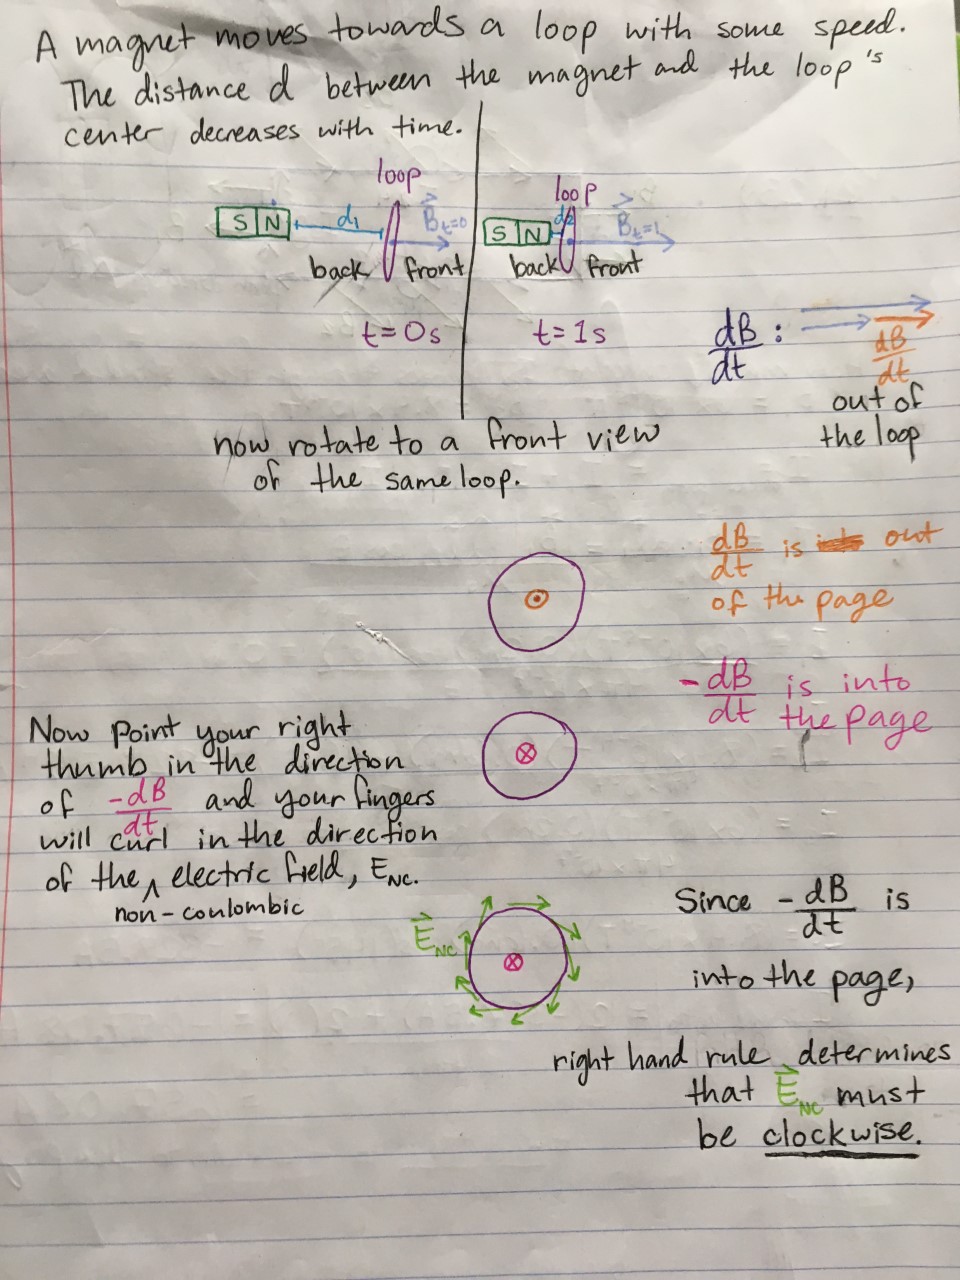 A magnet moves towards a loop with some speed.
The distance d between the magnet and the loop's
center decreases with time.
loop
S N d₁ B⃗ₜ₌₀
back front
t=0s
loop
S N d₂ B⃗ₜ₌₁
back front
t=1s
dB/dt : dB/dt
out of
the loop
now rotate to a front view
of the same loop.
dB/dt is out
of the page
-dB/dt is into
the page
Now point your right
thumb in the direction
of -dB/dt and your fingers
will curl in the direction
of the ∧ electric field, E_NC.
non-coulombic
E⃗_NC
Since -dB/dt is
into the page,
right hand rule determines
that E⃗_NC must
be clockwise.